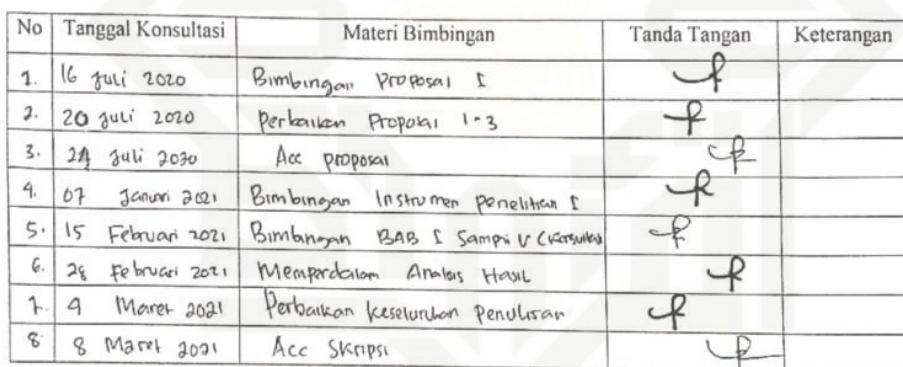 No Tanggal Konsultasi Materi Bimbingan Tanda Tangan Keterangan
1. 16 Juli 2020 Bimbingan Proposal I
2. 20 Juli 2020 Perbaikan Proposal 1-3
3. Juli 2020 Acc proposal
4. 07 Januari 2021 Bimbingan Instrumen Penelitian I
5. 15 Februari 2021 Bimbingan BAB I Sampai V
6. 28 Februari 2021 Memperdalam Analisis Hasil
7. 4 Maret 2021 Perbaikan Keseluruhan Penulisan
8 8 Maret 2021 Acc Skripsi